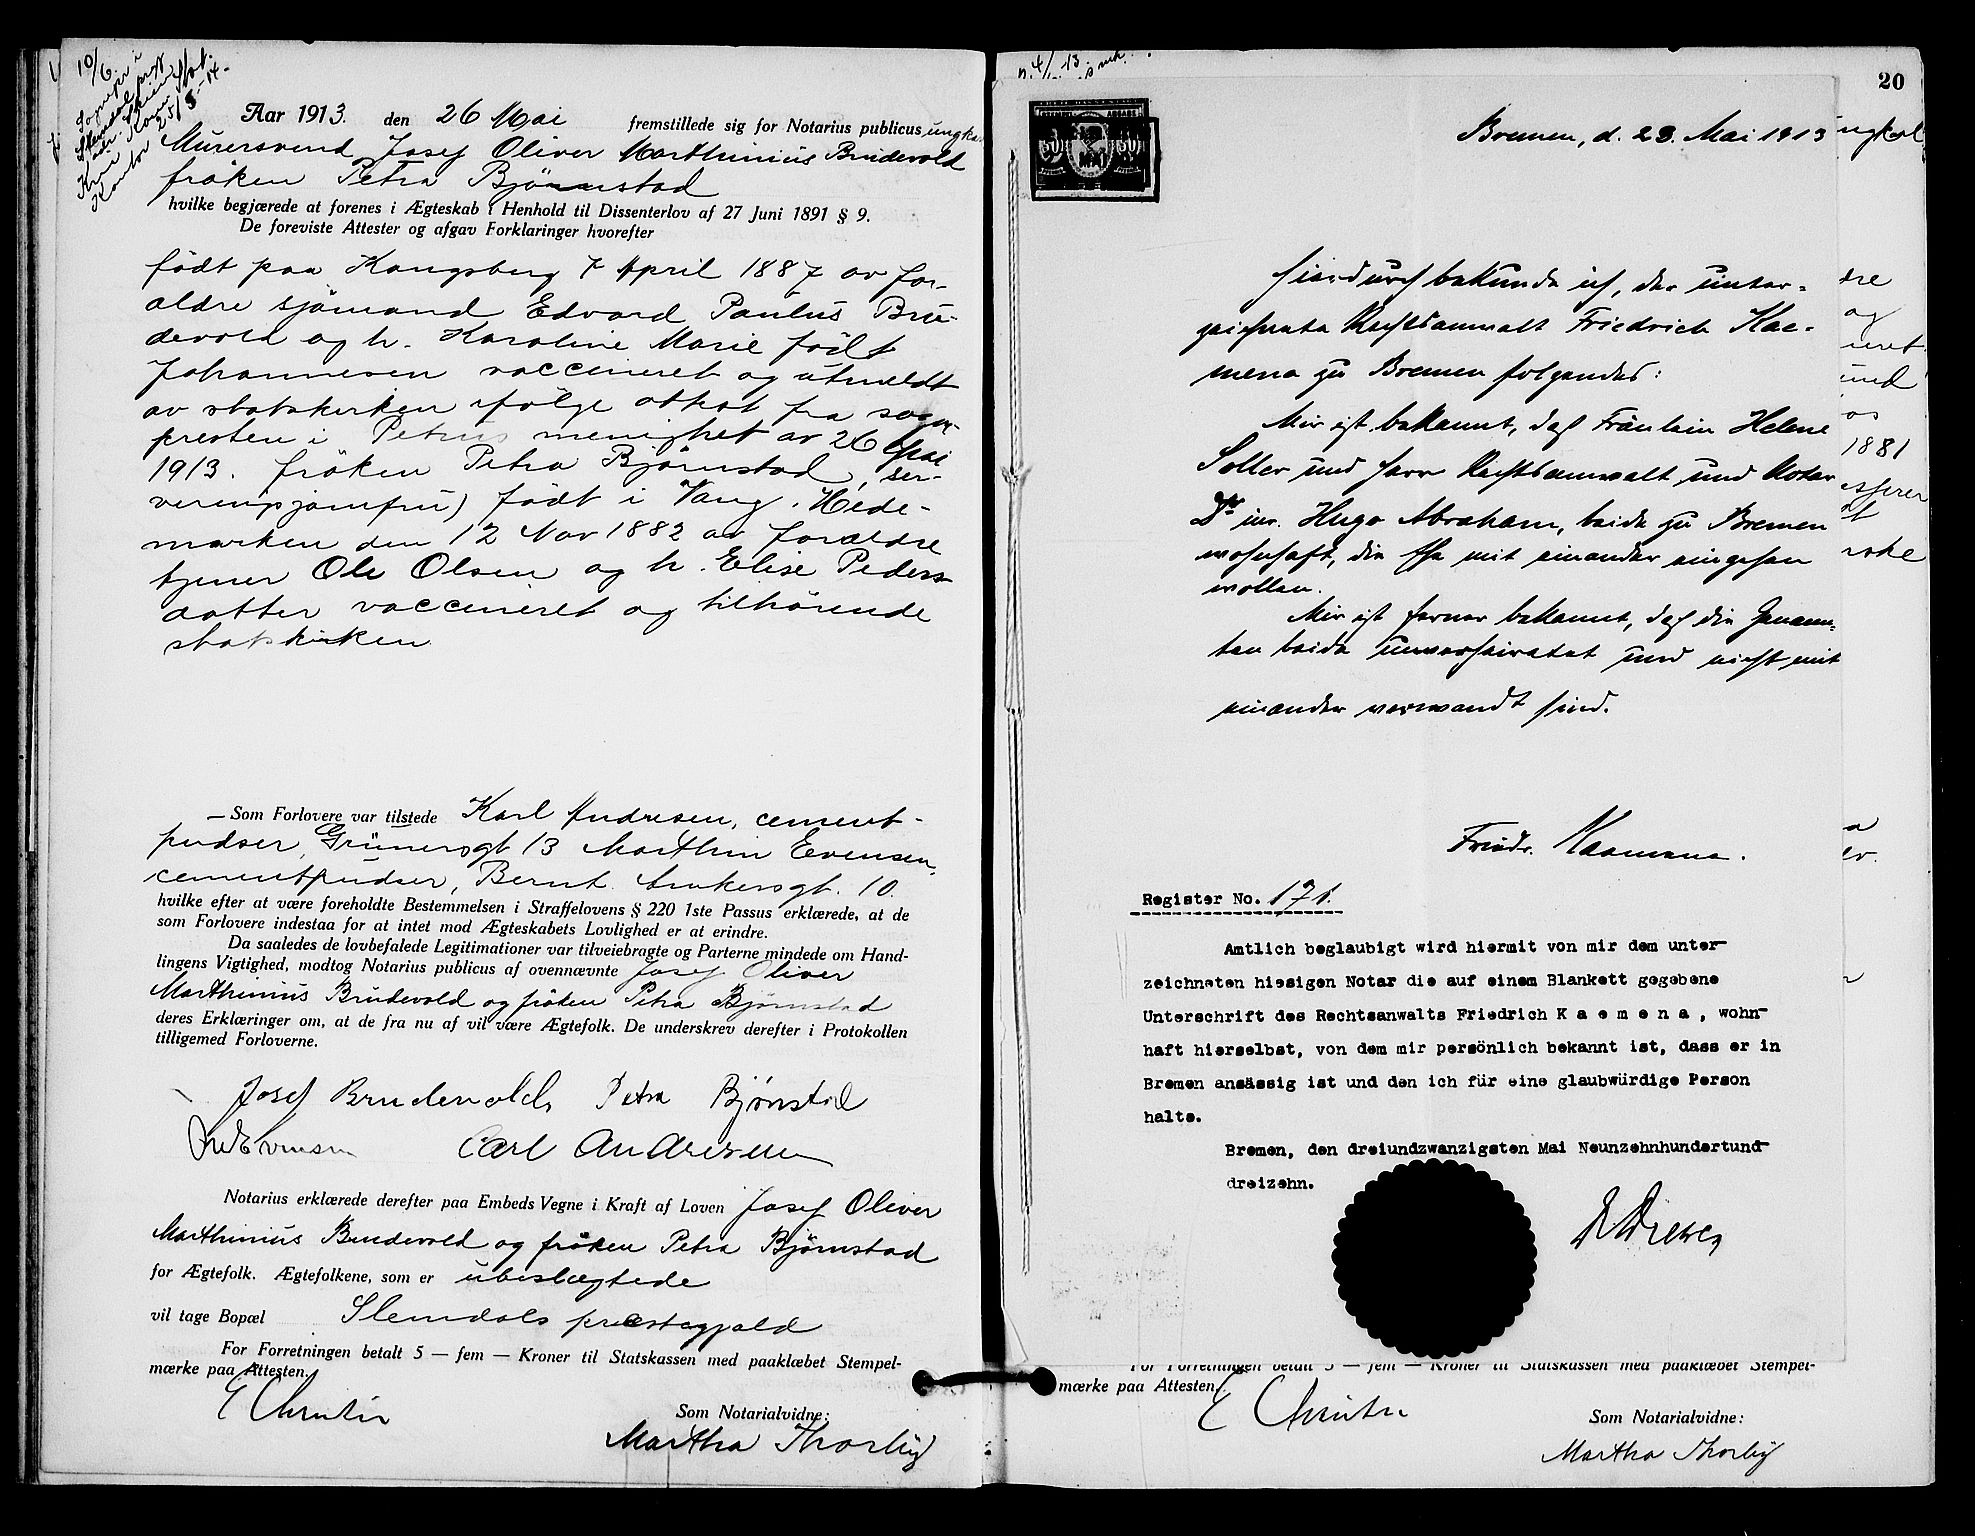 10/6.
Aar 1913. den 26 Mai fremstillede sig for Notarius publicus ungka
Murersvend Josef Oliver Marthinius Brudevold
frøken Petra Bjørnstad
hvilke begjærede at forenes i Ægteskab i Henhold til Dissenterlov af 27 Juni 1891 § 9.
De foreviste Attester og afgav Forklaringer hvorefter
født paa Kongsberg 7 April 1887 av for-
ældre sjømand Edvard Paulus Bru-
devold og h. Karoline Marie født
Johannesen vaccineret og utmeldt
av statskirken ifølge attest fra sogne-
presten i Petrus menighet av 26 Mai
1913. frøken Petra Bjørnstad, ser-
veringsjomfru) født i Vang, Hede-
marken den 12 Nov 1882 av forældre
tjener Ole Olsen og h. Elise Peders-
datter vaccineret og tilhørende
statskirken.
Som Forlovere var tilstede Karl Andresen, cement-
pudser, Grünersgt 13 Marthin Evensen,
cementpudser, Bernt Ankersgt. 10.
hvilke efter at være foreholdte Bestemmelsen i Straffelovens § 220 1ste Passus erklærede, at de
som Forlovere indestaa for at intet mod Ægteskabets Lovlighed er at erindre.
Da saaledes de lovbefalede Legitimationer var tilveiebragte og Parterne mindede om Hand-
lingens Vigtighed, modtog Notarius publicus af ovennævnte Josef Oliver
Marthinius Brudevold og frøken Petra Bjørnstad
deres Erklæringer om, at de fra nu af vil være Ægtefolk. De underskrev derefter i Protokollen
tilligemed Forloverne.
Josef Brudevold, Petra Bjørnstad
Evensen Carl Andresen
Notarius erklærede derefter paa Embeds Vegne i Kraft af Loven Josef Oliver
Marthinius Brudevold og frøken Petra Bjørnstad
for Ægtefolk. Ægtefolkene, som er ubeslægtede
vil tage Bopæl Slemdals præstegjæld
For Forretningen betalt 5 — fem — Kroner til Statskassen med paaklæbet Stempel-
mærke paa Attesten.
E Christie
Som Notarialvidne:
Martha Thorby
20
Bremen, d. 23. Mai 1913
Hierdurch bekunde ich, der unter-
zeichnete Rechtsanwalt Friedrich Kae-
mena zu Bremen folgendes:
Mir ist bekannt, daß Fräulein Helene
Soller und Herr Rechtsanwalt und Notar
Dr. jur. Hugo Abraham, beide zu Bremen
wohnhaft, die Ehe mit einander eingehen
wollen.
Mir ist ferner bekannt, daß die Genann-
ten beide unverheiratet und nicht mit
einander verwandt sind.
Friedr. Kaemena.
Register No. 171.
Amtlich beglaubigt wird hiermit von mir dem unter-
zeichneten hiesigen Notar die auf einem Blankett gegebene
Unterschrift des Rechtsanwalts Friedrich K a e m e n a , wohn-
haft hierselbst, von dem mir persönlich bekannt ist, dass er in
Bremen ansässig ist und den ich für eine glaubwürdige Person
halte.
Bremen, den dreiundzwanzigsten Mai Neunzehnhundertund-
dreizehn.
For Forretningen betalt 5 — fem — Kroner til Statskassen med paaklæbet Stempel-
mærke paa Attesten.
E Christie
Som Notarialvidne:
Martha Thorby
1881